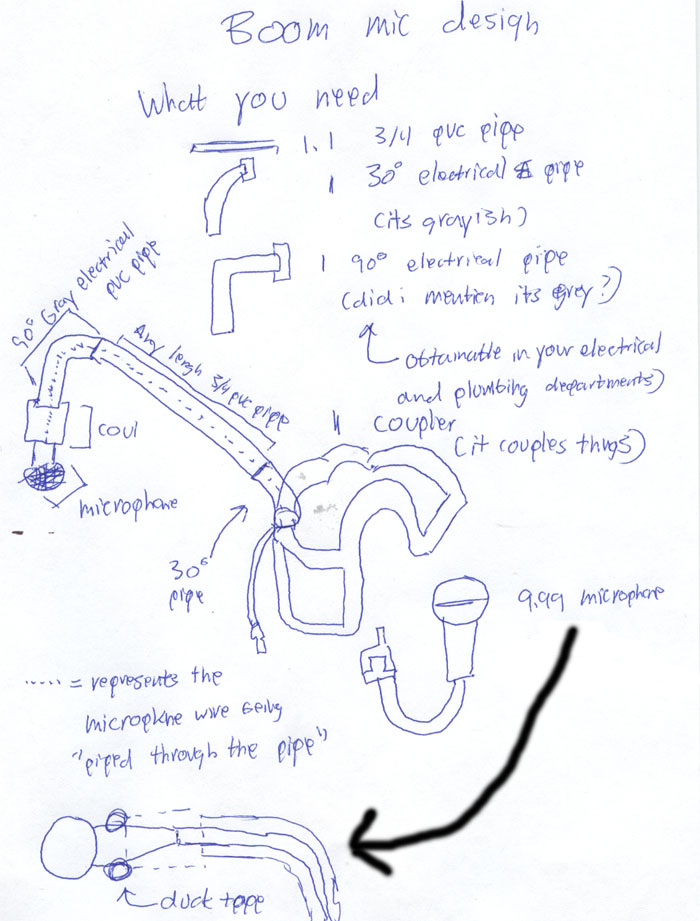 Boom mic design
What you need
1.1 3/4 pvc pipe
1 30° electrical pipe
(its grayish)
1 90° electrical pipe
(did i mention its grey?)
obtainable in your electrical
and plumbing departments)
11 coupler
(it couples thngs)
90° Gray electrical
pvc pipe
Any lengh 3/4 pvc pipe
coul
microphone
30°
pipe
9.99 microphone
..... = represents the
micropkne wire being
"piped through the pipe"
duck tape